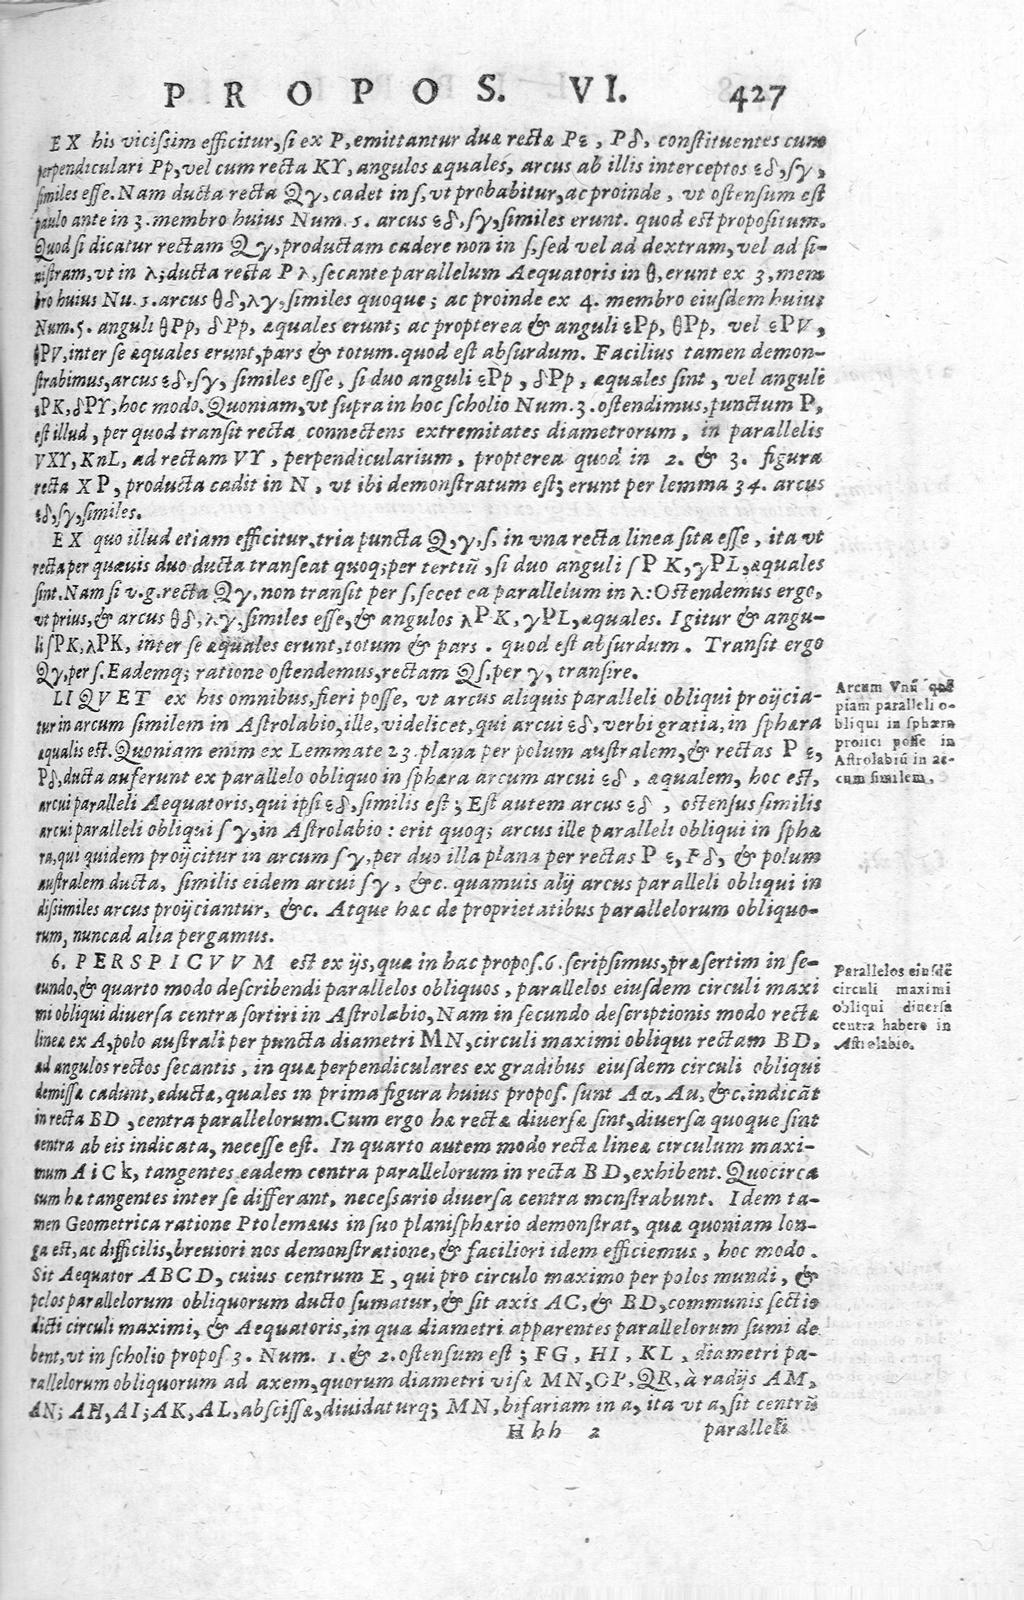 PROPOS. VI. 427
EX his vicissim efficitur, si ex P, emittantur duæ rectæ Pε, Pδ, constituentes cum
perpendiculari Pp, vel cum recta KY, angulos æquales, arcus ab illis interceptos εδ, ſγ,
similes esse. Nam ducta recta Qγ, cadet in ſ, vt probabitur, ac proinde, vt ostensum est
paulo ante in 3. membro huius Num. 5. arcus εδ, ſγ, similes erunt. quod est propositum.
Quod si dicatur rectam Qγ, productam cadere non in ſ, sed vel ad dextram, vel ad si-
nistram, vt in λ; ducta recta Pλ, secante parallelum Aequatoris in θ, erunt ex 3. mem
bro huius Nu. 5. arcus θδ, λγ, similes quoque; ac proinde ex 4. membro eiusdem huius
Num. 5. anguli θPp, δPp, æquales erunt; ac propterea & anguli εPp, θPp, vel εPV,
θPV, inter se æquales erunt, pars & totum. quod est absurdum. Facilius tamen demon-
strabimus, arcus εδ, ſγ, similes esse, si duo anguli εPp, δPp, æquales sint, vel anguli
εPK, δPY, hoc modo. Quoniam, vt supra in hoc scholio Num. 3. ostendimus, punctum P,
est illud, per quod transit recta connectens extremitates diametrorum, in parallelis
VXY, KnL, ad rectam VY, perpendicularium, propterea quod in 2. & 3. figura
recta XP, producta cadit in N, vt ibi demonstratum est; erunt per lemma 34. arcus
εδ, ſγ, similes.
EX quo illud etiam efficitur, tria puncta Q, γ, ſ, in vna recta linea sita esse, ita vt
recta per quæuis duo ducta transeat quoq; per tertiũ, si duo anguli ſPK, γPL, æquales
sint. Nam si v. g. recta Qγ, non transit per ſ, secet ea parallelum in λ: Ostendemus ergo,
vt prius, & arcus θδ, λγ, similes esse, & angulos λPK, γPL, æquales. Igitur & angu-
li ſPK, λPK, inter se æquales erunt, totum & pars. quod est absurdum. Transit ergo
Qγ, per ſ. Eademq; ratione ostendemus, rectam Qſ, per γ, transire.
LIQVET ex his omnibus, fieri posse, vt arcus aliquis paralleli obliqui proijcia-
tur in arcum similem in Astrolabio, ille, videlicet, qui arcui εδ, verbi gratia, in sphæra
æqualis est. Quoniam enim ex Lemmate 23. plana per polum australem, & rectas Pε,
Pδ, ducta auferunt ex parallelo obliquo in sphæra arcum arcui εδ, æqualem, hoc est,
arcui paralleli Aequatoris, qui ipsi εδ, similis est; Est autem arcus εδ, ostensus similis
arcui paralleli obliqui ſγ, in Astrolabio: erit quoq; arcus ille paralleli obliqui in sphæ
ra, qui quidem proijcitur in arcum ſγ, per duo illa plana per rectas Pε, Pδ, & polum
australem ducta, similis eidem arcui ſγ, &c. quamuis alij arcus paralleli obliqui in
dissimiles arcus proijciantur, &c. Atque hæc de proprietatibus parallelorum obliquo-
rum, nunc ad alia pergamus.
Arcum Vnũ quẽ
piam paralleli o-
bliqui in sphæra
proiici posse in
Astrolabiũ in ar-
cum similem.
6. PERSPICVVM est ex ijs, quæ in hac propos. 6. scripsimus, præsertim in se-
cundo, & quarto modo describendi parallelos obliquos, parallelos eiusdem circuli maxi
mi obliqui diuersa centra sortiri in Astrolabio, Nam in secundo descriptionis modo rectæ
lineæ ex A, polo australi per puncta diametri MN, circuli maximi obliqui rectam BD,
ad angulos rectos secantis, in quæ perpendiculares ex gradibus eiusdem circuli obliqui
demissæ cadunt, eductæ, quales in prima figura huius propos. sunt Aα, Au, &c. indicãt
in recta BD, centra parallelorum. Cum ergo hæ rectæ diuersæ sint, diuersa quoque sint
centra ab eis indicata, necesse est. In quarto autem modo rectæ lineæ circulum maxi-
mum AiCk, tangentes eadem centra parallelorum in recta BD, exhibent. Quocirca
cum hæ tangentes inter se differant, necessario diuersa centra monstrabunt. Idem ta-
men Geometrica ratione Ptolemæus in suo planisphærio demonstrat, quæ quoniam lon-
ga est, ac difficilis, breuiori nos demonstratione, & faciliori idem efficiemus, hoc modo.
Sit Aequator ABCD, cuius centrum E, qui pro circulo maximo per polos mundi, &
polos parallelorum obliquorum ducto sumatur, & sit axis AC, & BD, communis sectio
dicti circuli maximi, & Aequatoris, in qua diametri apparentes parallelorum sumi de
bent, vt in scholio propos 3. Num. 1. & 2. ostensum est; FG, HI, KL, diametri pa-
rallelorum obliquorum ad axem, quorum diametri visæ MN, OP, QR, à radijs AM,
AN; AH, AI; AK, AL, abscissæ, diuidaturq; MN, bifariam in a, ita vt a, sit centrũ
Parallelos eiusdẽ
circuli maximi
obliqui diuersa
centra habere in
Astrolabio.
Hhh 2 paralleli